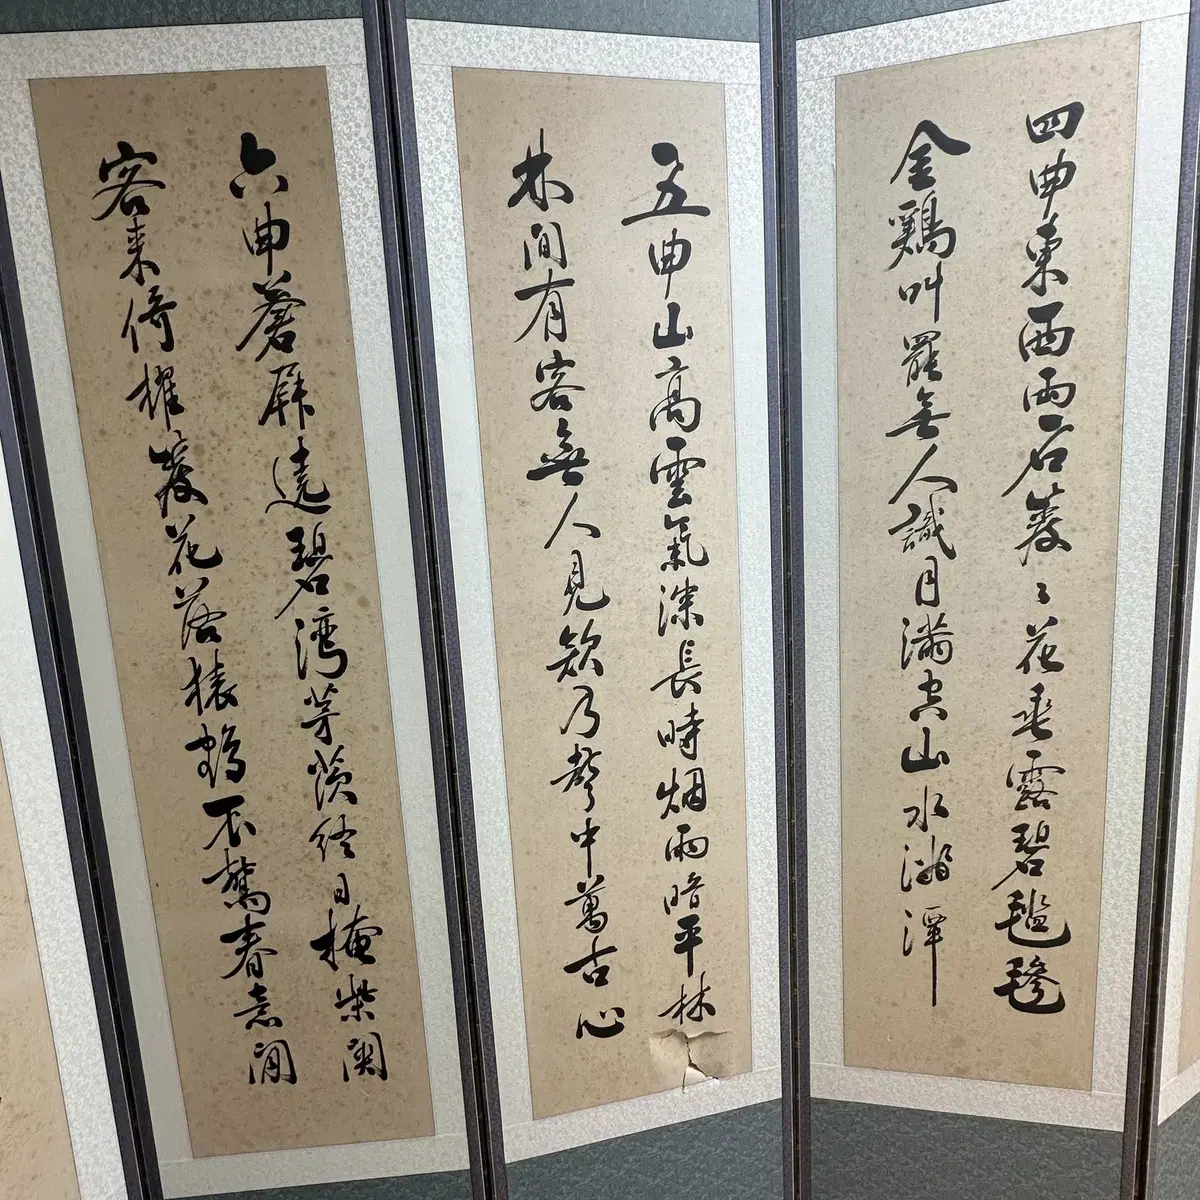 四曲東西兩石巖巖花垂露碧㲯毿
金鷄叫罷無人識月滿空山水滿潭
五曲山高雲氣深長時烟雨暗平林
林間有客無人見欸乃聲中萬古心
六曲蒼屛遶碧灣茅茨終日掩柴關
客來倚櫂巖花落猿鶴不驚春意閒